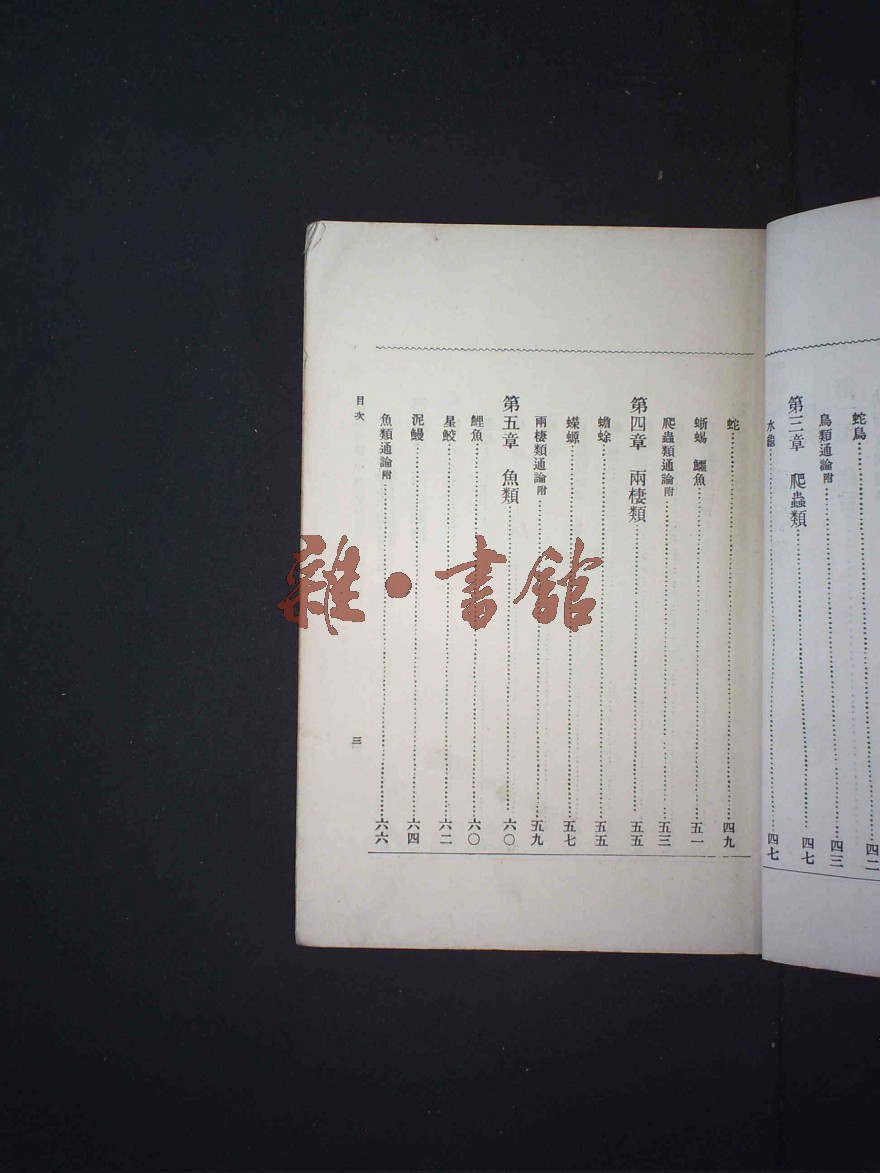 蛇鳥……四二
鳥類通論附……四三
第三章　爬蟲類……四七
水龜……四七
蛇……四九
蜥蜴　鱷魚……五一
爬蟲類通論附……五三
第四章　兩棲類……五五
蟾蜍……五五
蠑螈……五七
兩棲類通論附……五九
第五章　魚類……六〇
鯉魚……六〇
星鮫……六二
泥鰻……六四
魚類通論附……六六
目次
三
雜·書館